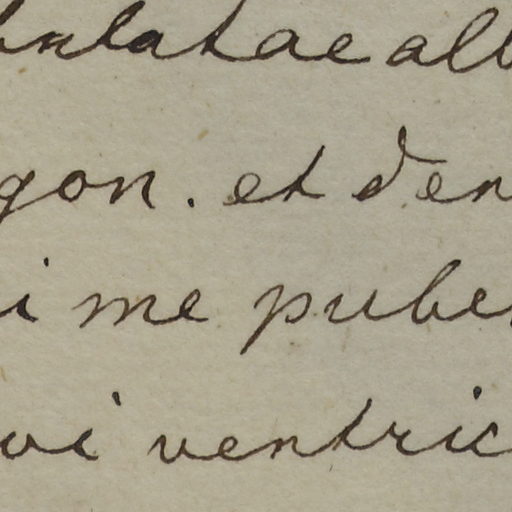 latae alb
gon. et den
i me puber
vi ventric